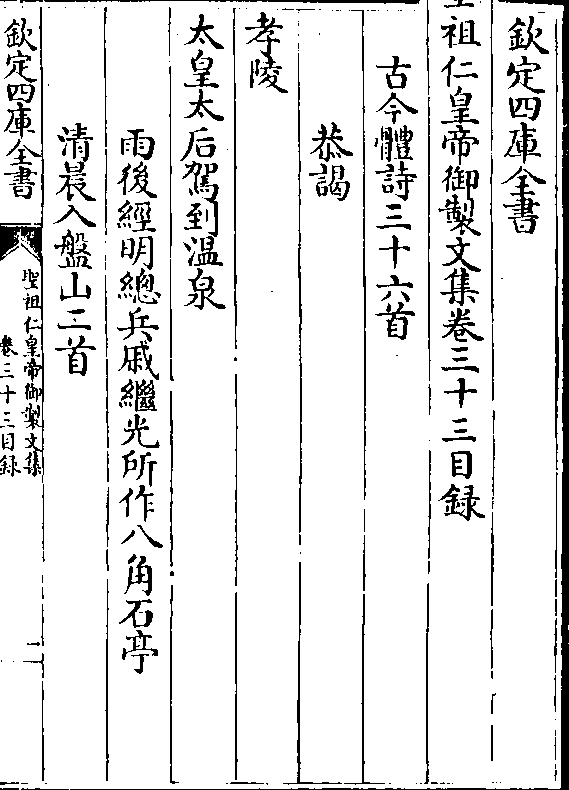 欽定四庫全書
聖祖仁皇帝御製文集卷三十三目録
古今體詩三十六首
恭謁
孝陵
太皇太后駕到温泉
雨後經明總兵戚繼光所作八角石亭
清晨入盤山二首
欽定四庫全書
聖祖仁皇帝御製文集
卷三十三目録